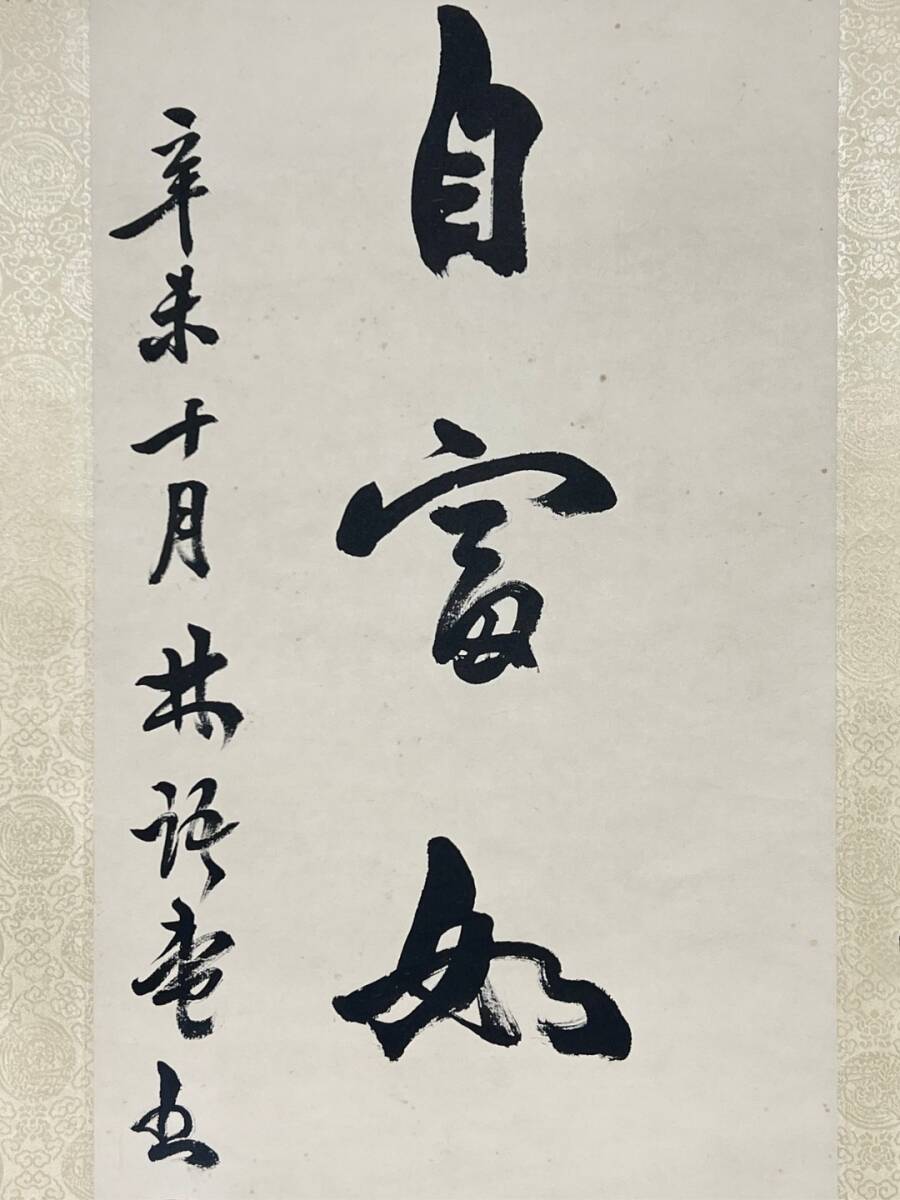 自富如
辛未十月林語堂書